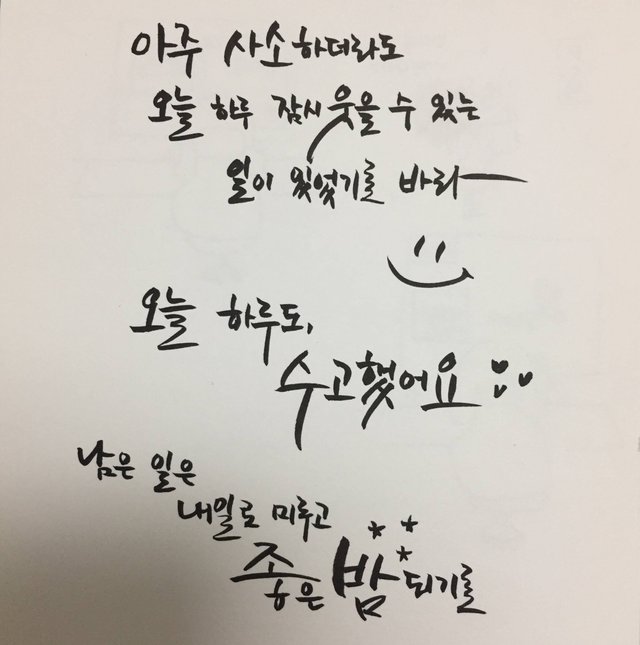 아주 사소하더라도
오늘 하루 잠시 웃을 수 있는
일이 있었기를 바라
오늘 하루도,
수고했어요
남은 일은
내일로 미루고
좋은 밤 되기를